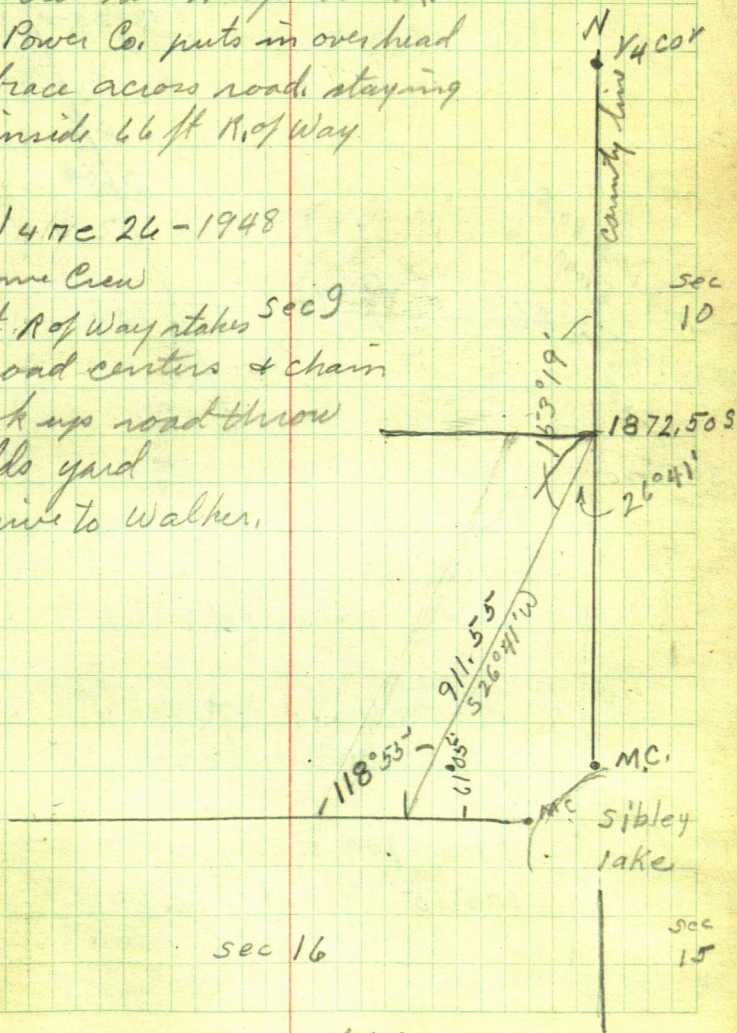 Power Co. puts in overhead
brace across road, staying
inside 66 ft R. of Way
June 26-1948
Crew
R of Way stakes
road centers & chain
up road throw
yard
to Walker.
N
1/4 cor
county line
sec
10
sec 9
153°19'
1872.50 S
26°41'
911.55
S 26°41' W
118°55'
61°05'
M.C.
M.C.
Sibley
lake
sec 16
sec
15